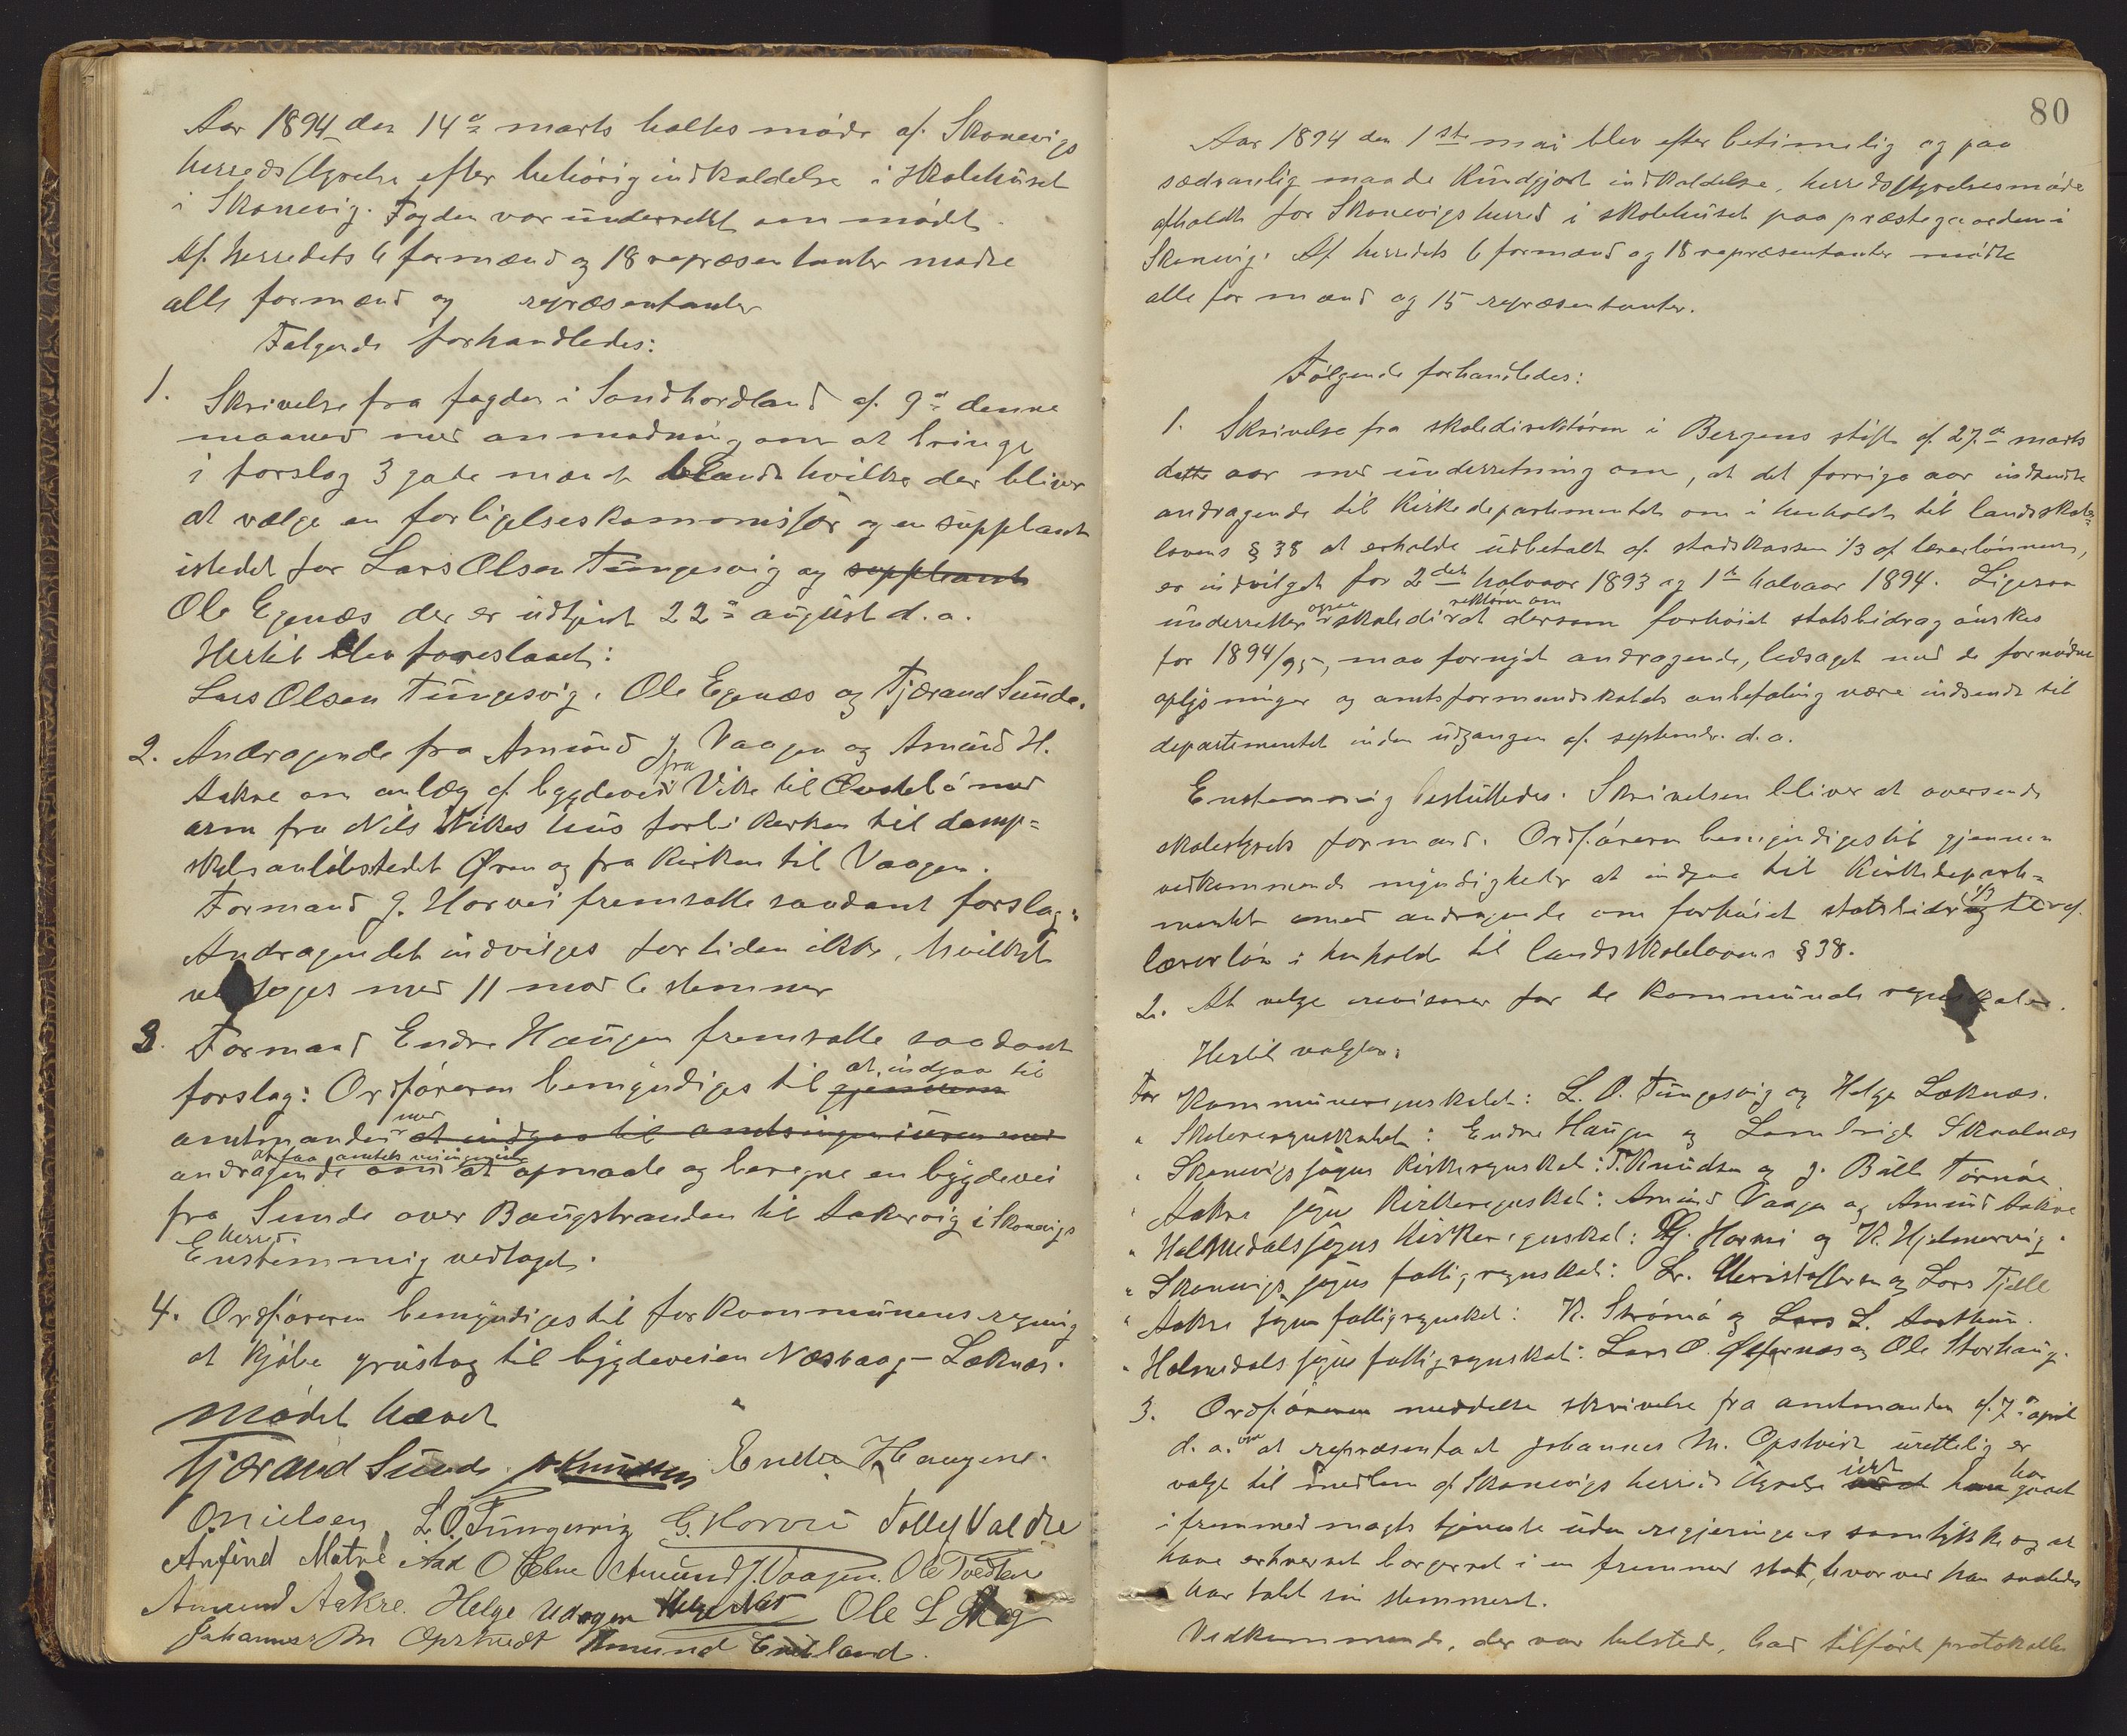 Aar 1894 den 14de marts holtes møde af Skonevigs
herredsstyrelse efter behörig indkaldelse i skolehüset
i Skonevig. Fogden var ünderrettet om mödet.
Af herredets 6 formænd og 18 repræsentanter mødte
alle formænd og repræsentanter
Følgende forhandledes:
1. Skrivelse fra fogden i Söndhordland af 9de denne
maaned med anmodning om at bringe
i forslag 3 gode mænd blandt hvilke der bliver
at vælge en forligelseskommissær og en süppleant
istedet for Lars Olsen Tüngesvig og suppleant
Ole Egenæs der er üdtjent 22de aügüst d. a.
Hertil blev foreslaaet:
Lars Olsen Tüngesvig, Ole Egenæs og Tjærand Sünde.
2. Andragende fra Amünd J. Vaagen og Amünd H.
Aakre om anlæg af bygdevei fra Vike til Østebö med
arm fra Nils Vikes hüs forbi kirken til damp=
skibsanlöbstedet Øren og fra kirken til Vaagen.
Formand G. Horvei fremsatte saadant forslag:
Andragendet indvilges for tiden ikke, hvilket
vedtoges med 11 mod 6 stemmer
3. Formand Endre Haügen fremsatte saadant
forslag: Ordföreren bemyndiges til gjennem at indgaa til
amtmanden med at indgaa til amtsingeniören med
andragende om at faa amtets veiingeniör at opmaale og beregne en bygdevei
fra Sunde over Baügstranden til Aakervig i Skonevigs
herred.
Enstemmig vedtaget.
4. Ordföreren bemyndiges til for kommünens regning
at kjöbe grüstag til bygdeveien Næsvaag - Læknæs.
Mödet hævet
Tjærand Sünde. Knudsen Endre Haugene.
O Nielsen L. O. Tüngesvig G. Horvei Tolleif Valdre
Anfind Matre Aad O Ebne Amund J. Vaagen. Ole Tvedten
Amund Aakre. Helge Udagen Ole L
Johannes M Opstvedt Amund Eneland.
80
Aar 1894 den 1ste mai blev efter betimelig og paa
sædvanlig maade kündgjort indkaldelse, herredsstyrelsesmöde
afholdt for Skonevigs herred i skolehüset paa præstegaarden i
Skonevig. Af herredets 6 formænd og 18 repræsentanter mödte
alle formænd og 15 repræsentanter.
Fölgende forhandledes:
1. Skrivelse fra skoledirektören i Bergens stift af 27de marts
dette aar med ünderretning om, at det forrige aar indsendte
andragende til kirkedepartementet om i henhold til landsskole=
lovens § 38 at erholde üdbetalt af statskassen 1/3 af lærerlönnen,
er indvilget for 2det halvaar 1893 og 1ste halvaar 1894. Ligesaa
ünderretter ogsaa skoledirektören om at dersom forhöiet statsbidrag önskes
for 1894/95, maa fornyet andragende, ledsaget med de fornödne
oplysninger og amtsformandskabets anbefaling være indsendt til
departementet inden üdgangen af septembr. d. a.
Enstemmig beslüttedes: Skrivelsen bliver at oversende
skolestyrets formand. Ordföreren bemyndiges til gjennem
vedkommende myndigheder at indgaa til Kirkedeparte=
mentet med andragende om forhöiet statsbidrag 1/3 af
lærerlön i henhold til landsskolelovens § 38.
2. At vælge revisorer for de kommünale regnskaber.
Hertil valgtes:
For Kommüneregnskabet: L. O. Tüngesvig og Helge Læknæs.
" Skoleregnskabet: Endre Haügen og Lambrigt Skaalnæs
" Skonevigs sogns kirkeregnskab: T. Knüdsen og J. Büll Tornöe
" Aakre sogns kirkeregnskab: Amünd Vaage og Amünd Aakre
" Holmedals sogns kirkeregnskab: G. Horvei og K. Hjelmervig.
" Skonevigs sogns fattigregnskab: Kr. Christoffersen og Lars Tjelle
" Aakre sogns fattigregnskab: K. Strömö og Lars L. Aarthun.
" Holmedals sogns fattigregnskab: Lars O. Øfsernæs og Ole Storhaüg.
3. Ordföreren meddelte skrivelse fra amtmanden af 7de april
d. a. om at repræsentant Johannes M. Opstvedt ürettelig er
valgt til medlem af Skonevigs herredsstyrelse idet han har gaaet
i fremmed magts tjeneste üden regjeringens samtykke og at
have erhvervet borgerret i en fremmed stat, hvorved han saaledes
har tabt sin stemmeret.
Vedkommende, der var tilstede, lod tilföre protokollen